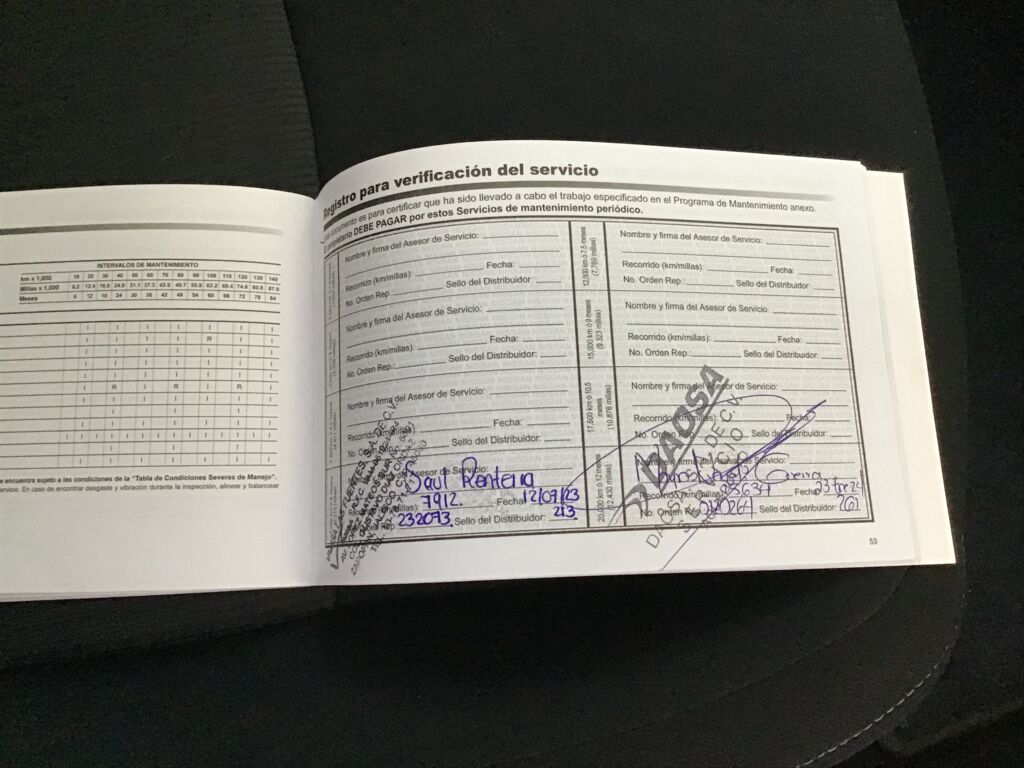 INTERVALOS DE MANTENIMIENTO
km x 1,000 10 20 30 40 50 60 70 80 90 100 110 120 130 140
Millas x 1,000 6.2 12.4 18.6 24.9 31.1 37.3 43.5 49.7 55.9 62.2 68.4 74.6 80.8 87.0
Meses 6 12 18 24 30 36 42 48 54 60 66 72 78 84
encuentra sujeto a las condiciones de la "Tabla de Condiciones Severas de Manejo".
En caso de encontrar desgaste y vibración durante la inspección, alinear y balancear
Registro para verificación del servicio
documento es para certificar que ha sido llevado a cabo el trabajo especificado en el Programa de Mantenimiento anexo.
propietario DEBE PAGAR por estos Servicios de mantenimiento periódico.
Nombre y firma del Asesor de Servicio:
Recorrido (km/millas): Fecha:
No. Orden Rep.: Sello del Distribuidor:
Nombre y firma del Asesor de Servicio:
Recorrido (km/millas): Fecha:
No. Orden Rep.: Sello del Distribuidor:
Nombre y firma del Asesor de Servicio:
Recorrido (km/millas): Fecha:
No. Orden Sello del Distribuidor:
Asesor de Servicio:
Saul Renteria
7912. Fecha 12/07/23
232073. Sello del Distribuidor: 213
12,500 km ó 7.5 meses
(7,769 millas)
15,000 km ó 9 meses
(9,323 millas)
17,500 km ó 10.5
meses
(10,876 millas)
20,000 km ó 12 meses
(12,430 millas)
Nombre y firma del Asesor de Servicio:
Recorrido (km/millas): Fecha:
No. Orden Rep.: Sello del Distribuidor:
Nombre y firma del Asesor de Servicio:
Recorrido (km/millas): Fecha:
No. Orden Rep.: Sello del Distribuidor:
Nombre y firma del Asesor de Servicio:
Recorrido (km/millas) Fecha:
No. Orden Rep. Sello del Distribuidor:
DAOSA
Nombre y firma del Asesor de Servicio:
Recorrido (km/millas) Fecha
No. Orden Rep. Sello del Distribuidor: 261
53